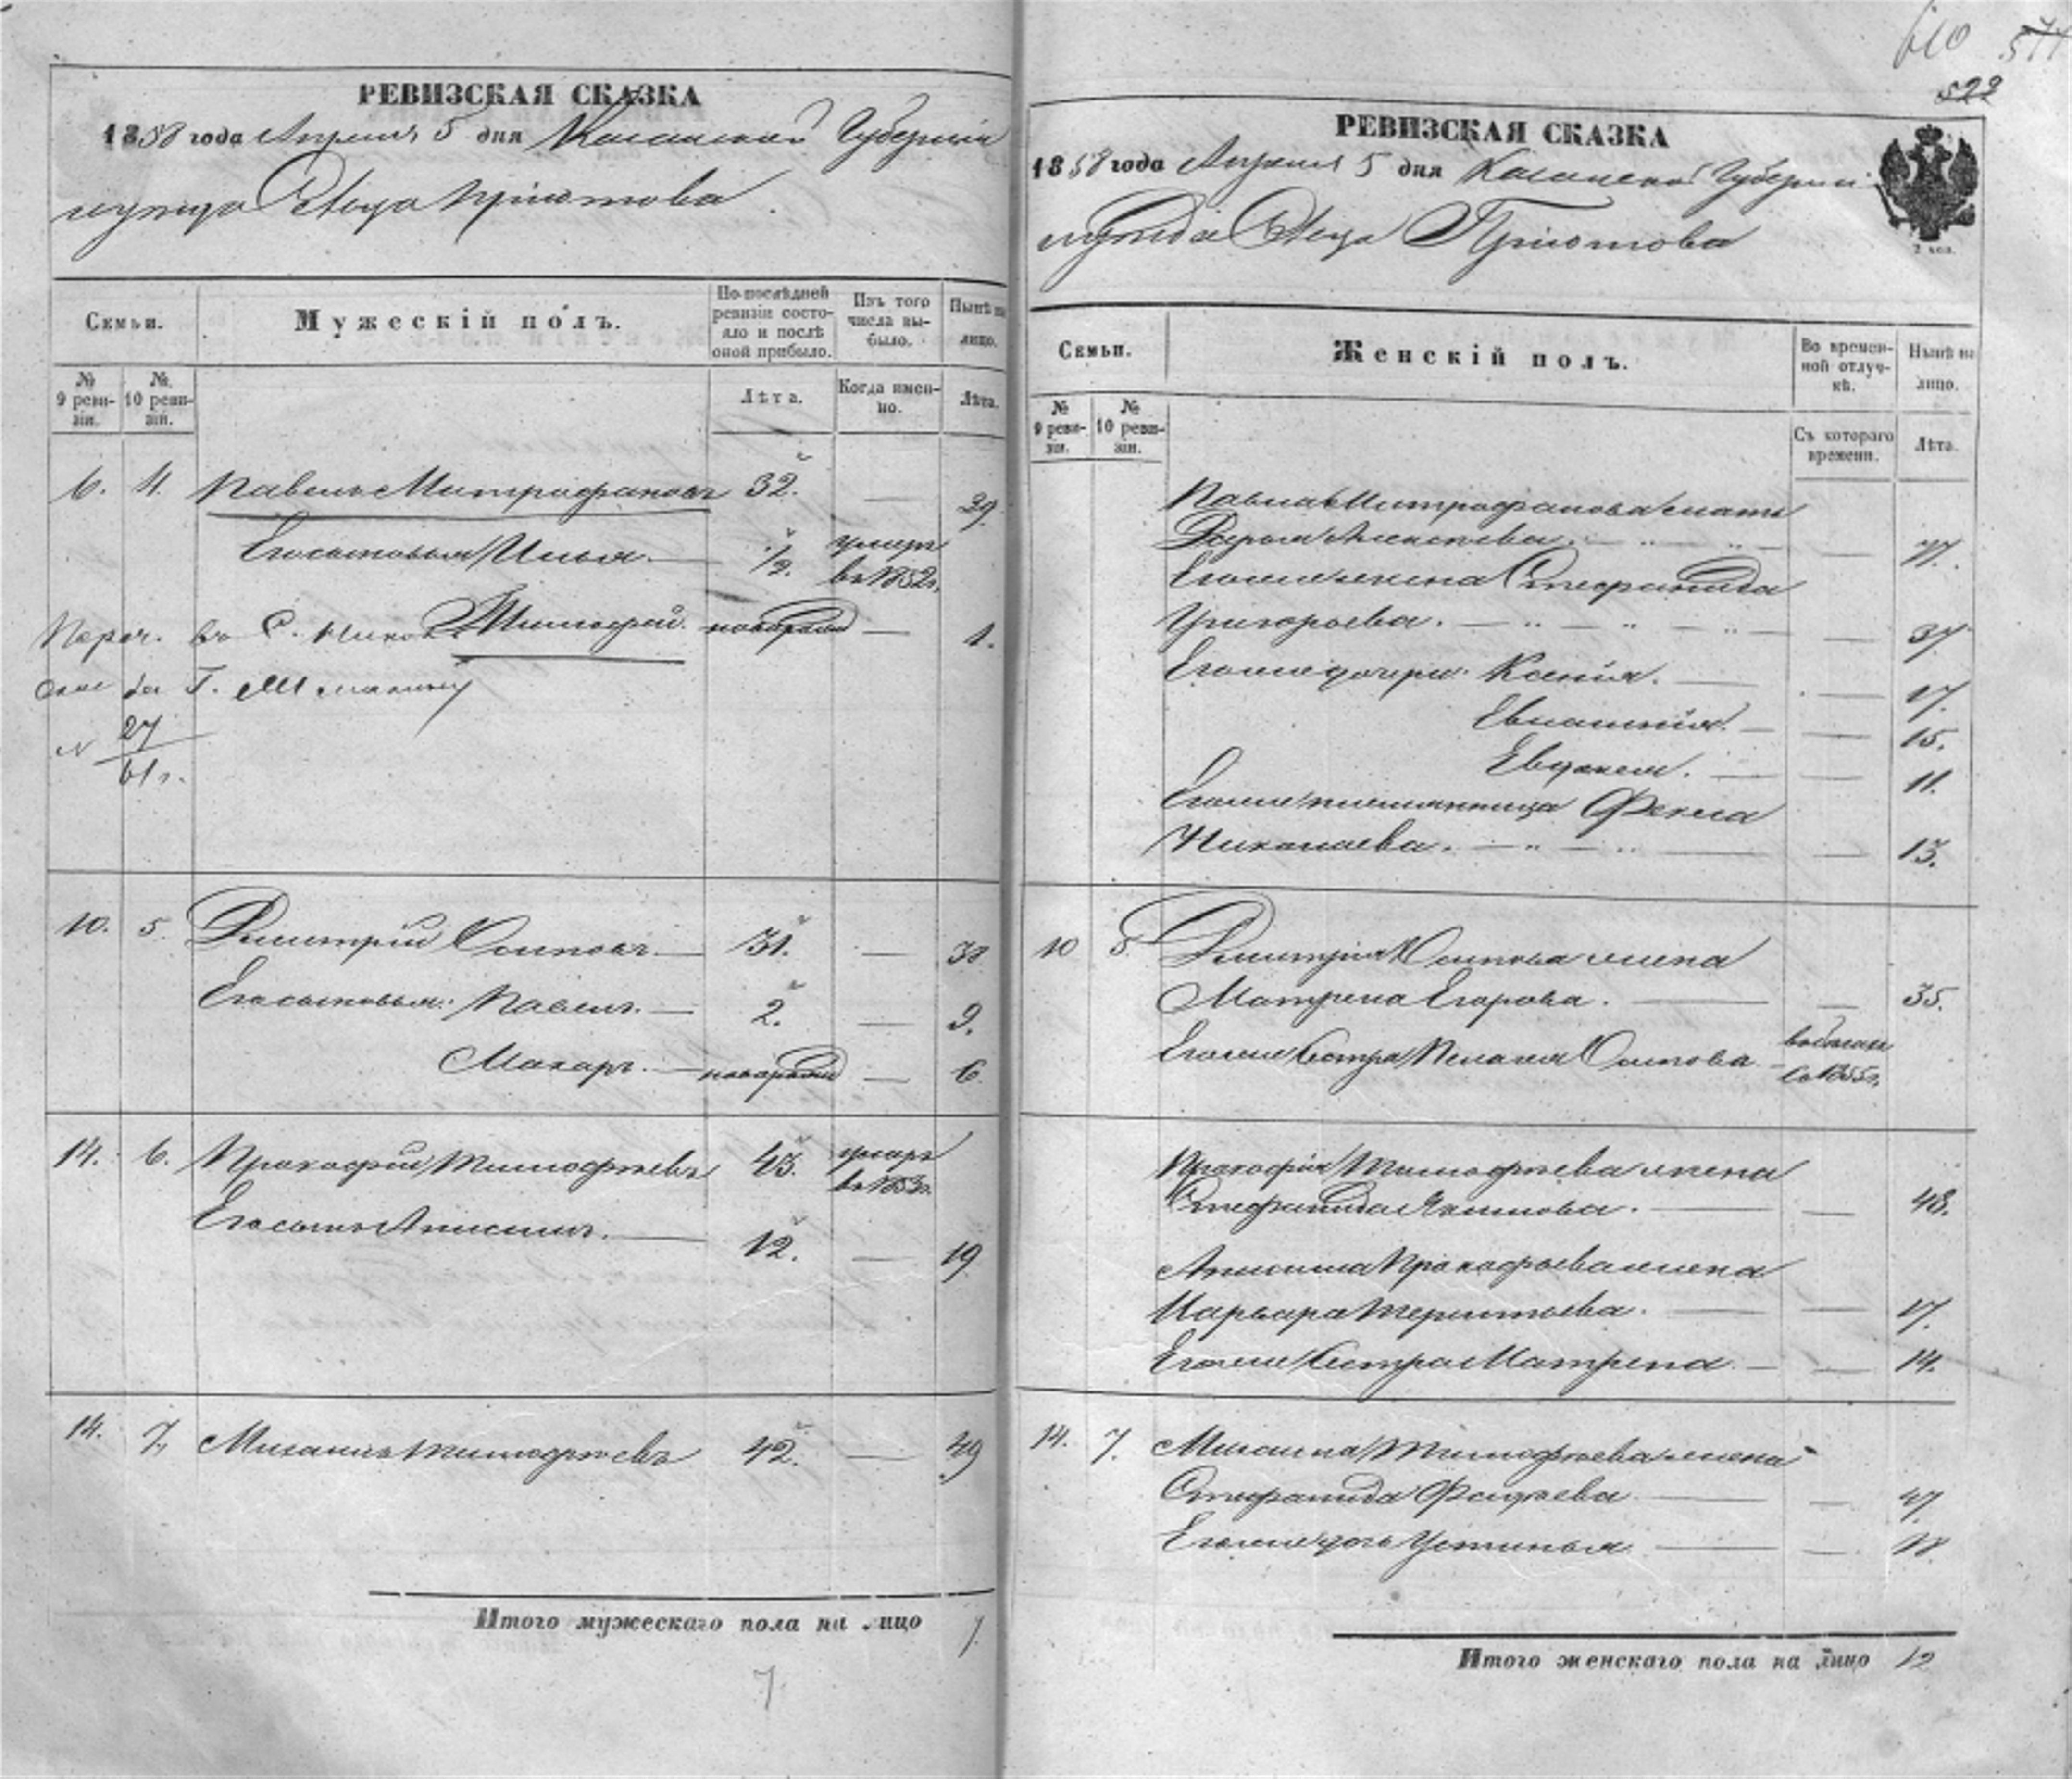 610
522
РЕВИЗСКАЯ СКАЗКА
1858 года Апреля 5 дня Казанской Губернии
Семьи.
Мужескій полъ.
По послѣдней ревизіи состояло и послѣ оной прибыло.
Изъ того числа выбыло.
Нынѣ на лицо.
№ 9 ревизіи.
№ 10 ревизіи.
Лѣта.
Когда именно.
Лѣта.
6. 4. Павелъ Митрофановъ 32. — 29.
Его сыновья Илья. — 1/2. умеръ
въ 1852г.
Тимофей. новорожд — 1.
Переч. въ С.
за Г.
№ 27/61 г.
10. 5. Дмитрій Осиповъ. — 31. — 38
Его сыновья: Павелъ. — 2. — 9.
Макаръ. — новорожд — 6.
14. 6. Прокофій Тимофѣевъ 43. умеръ
въ 1853г.
Его сынъ Анисимъ. — 12. — 19
14. 7. Михаилъ Тимофѣевъ 42. — 49
Итого мужескаго пола на лицо 7.
7.
РЕВИЗСКАЯ СКАЗКА
1858 года Апреля 5 дня Казанской Губерніи
2 коп.
Семьи.
Женскій полъ.
Во временной отлучкѣ.
Нынѣ на лицо.
№ 9 ревизіи.
№ 10 ревизіи.
Съ котораго времени.
Лѣта.
Павла Митрофанова мать
Дарья Алексѣева. — " — " — —
Его же жена Степанида
Григорьева. — " — " — " — — 37.
Его же дочери: Ксенія. — — 17.
Евлампія. — — 15.
Евдокея. — — 11.
Его же племянница Фекла
Николаева. — " — " — — 13.
10 5. Дмитрія Осипова жена
Матрена Егорова. — — 35.
Его же Сестра Пелагея Осипова
въ бѣгахъ
съ 1855г.
Прокофія Тимофѣева жена
Степанида Якимова. — — 48.
Анисима Прокофьева жена
Марья Терентьева. — — 17.
Его же Сестра Матрена — — 14.
14. 7. Михаила Тимофѣева жена
Степанида Фадѣева — — 47.
Его же дочь Устинья — —
Итого женскаго пола на лицо 12